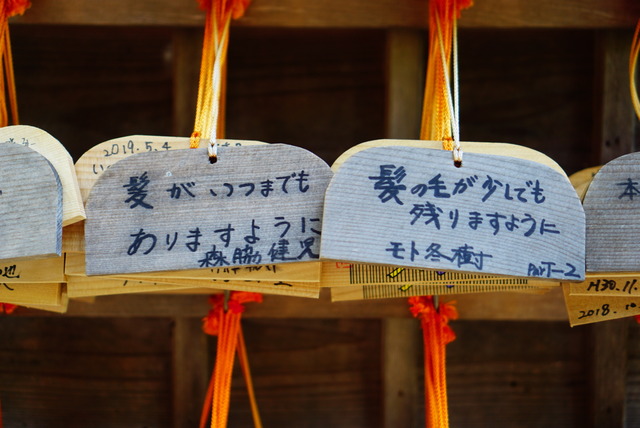 2019.5.4
髪がいつまでも
ありますように
森脇健児
髪の毛が少しでも
残りますように
モト冬樹
ParT-2
本
H30.11.
2018.10.